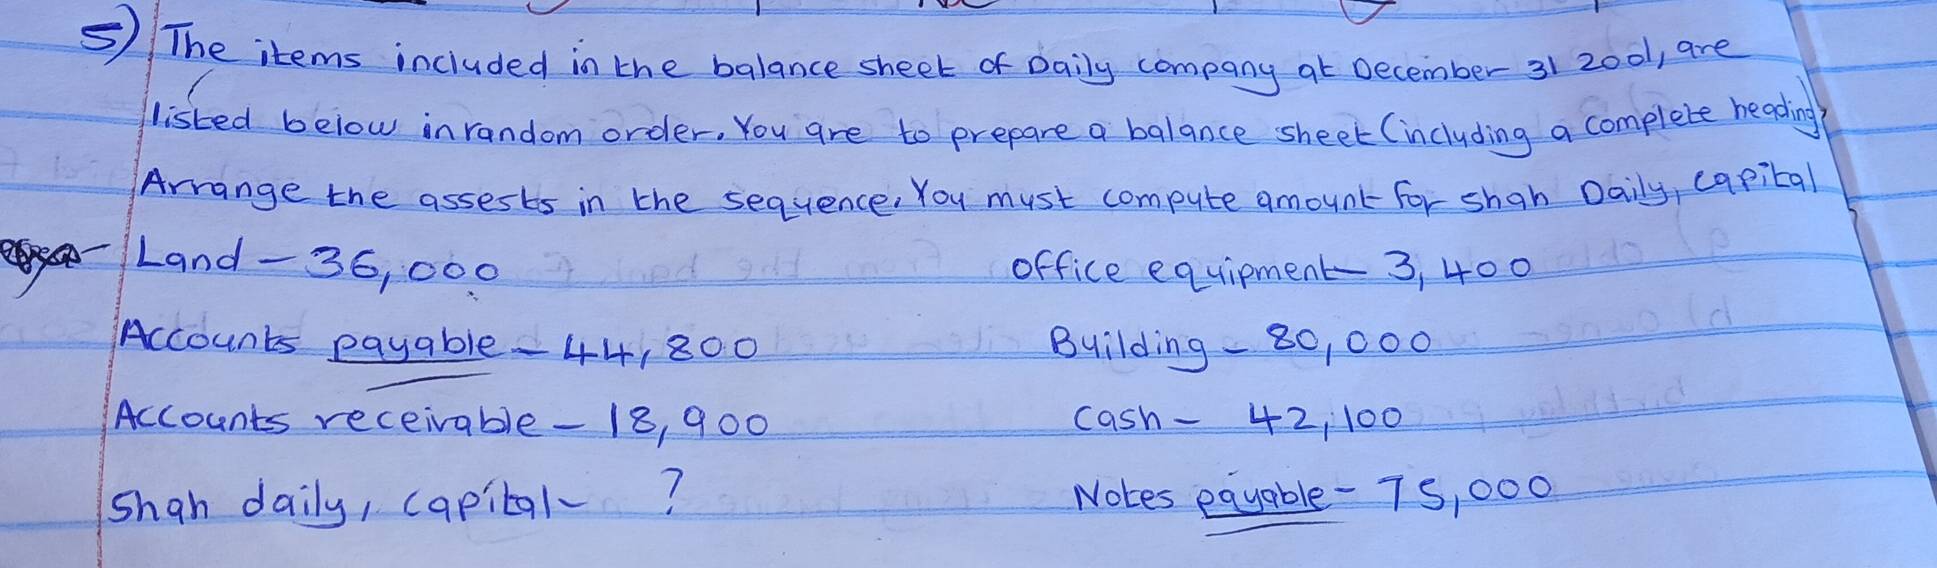 5) The items included in the balance sheet of Daily company at December 31 2001, are
listed below in random order. You are to prepare a balance sheet (including a complete heading)
Arrange the assests in the sequence. You must compute amount for shah Daily, capital
Land - 36,000 office equipment - 3,400
Accounts payable - 44,800 Building - 80,000
Accounts receivable - 18,900 cash - 42,100
shah daily, capital - ? Notes payable - 75,000